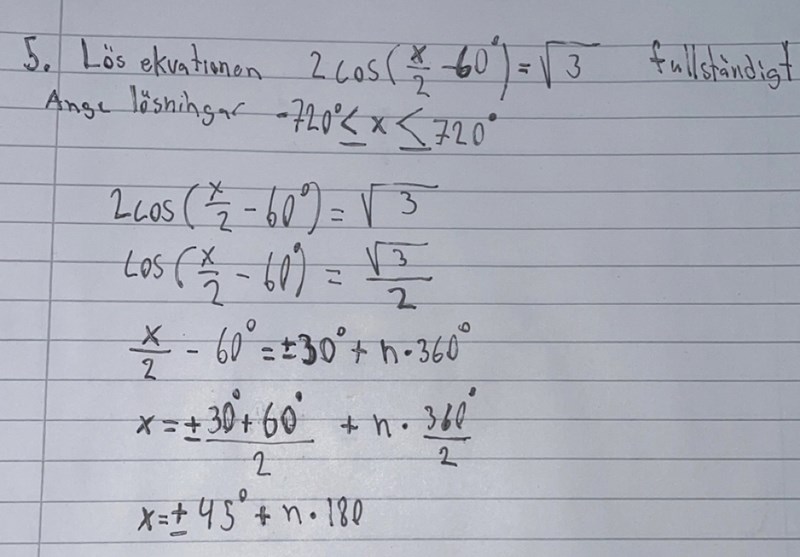 5. Lös ekvationen 2cos(x/2 - 60°) = √3 fullständigt
Ange lösningar -720° ≤ x ≤ 720°
2cos(x/2 - 60°) = √3
cos(x/2 - 60°) = √3/2
x/2 - 60° = ±30° + n·360°
x = (±30° + 60°)/2 + n·360°/2
x = ±45° + n·180